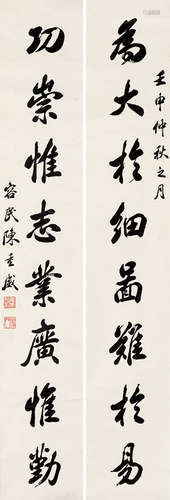 壬申仲秋之月
為大於細圖難於易
功崇惟志業廣惟勤
容民陳重威